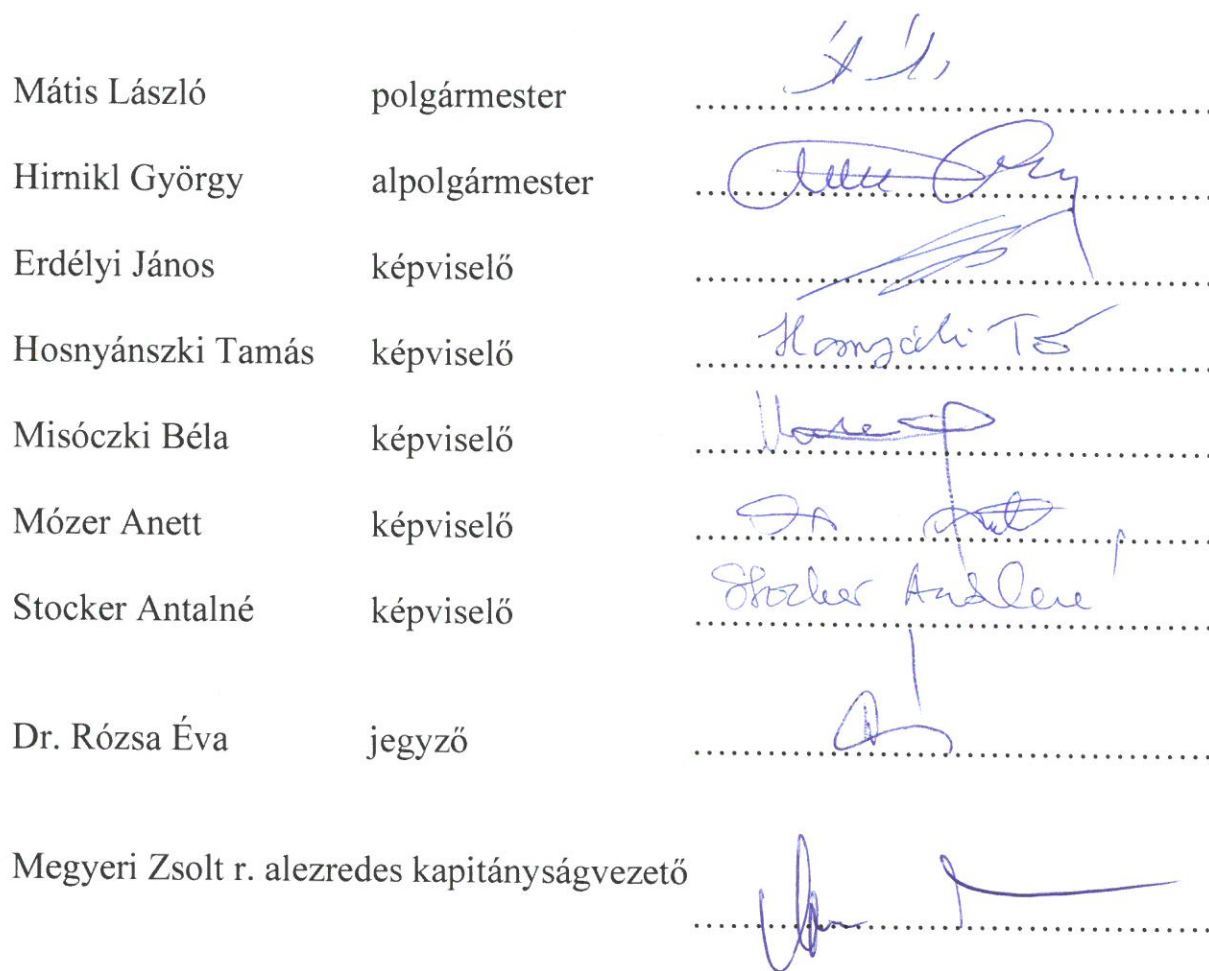 Mátis László polgármester
Hirnikl György alpolgármester
Erdélyi János képviselő
Hosnyánszki Tamás képviselő
Misóczki Béla képviselő
Mózer Anett képviselő
Stocker Antalné képviselő Stocker Antalné
Dr. Rózsa Éva jegyző
Megyeri Zsolt r. alezredes kapitányságvezető